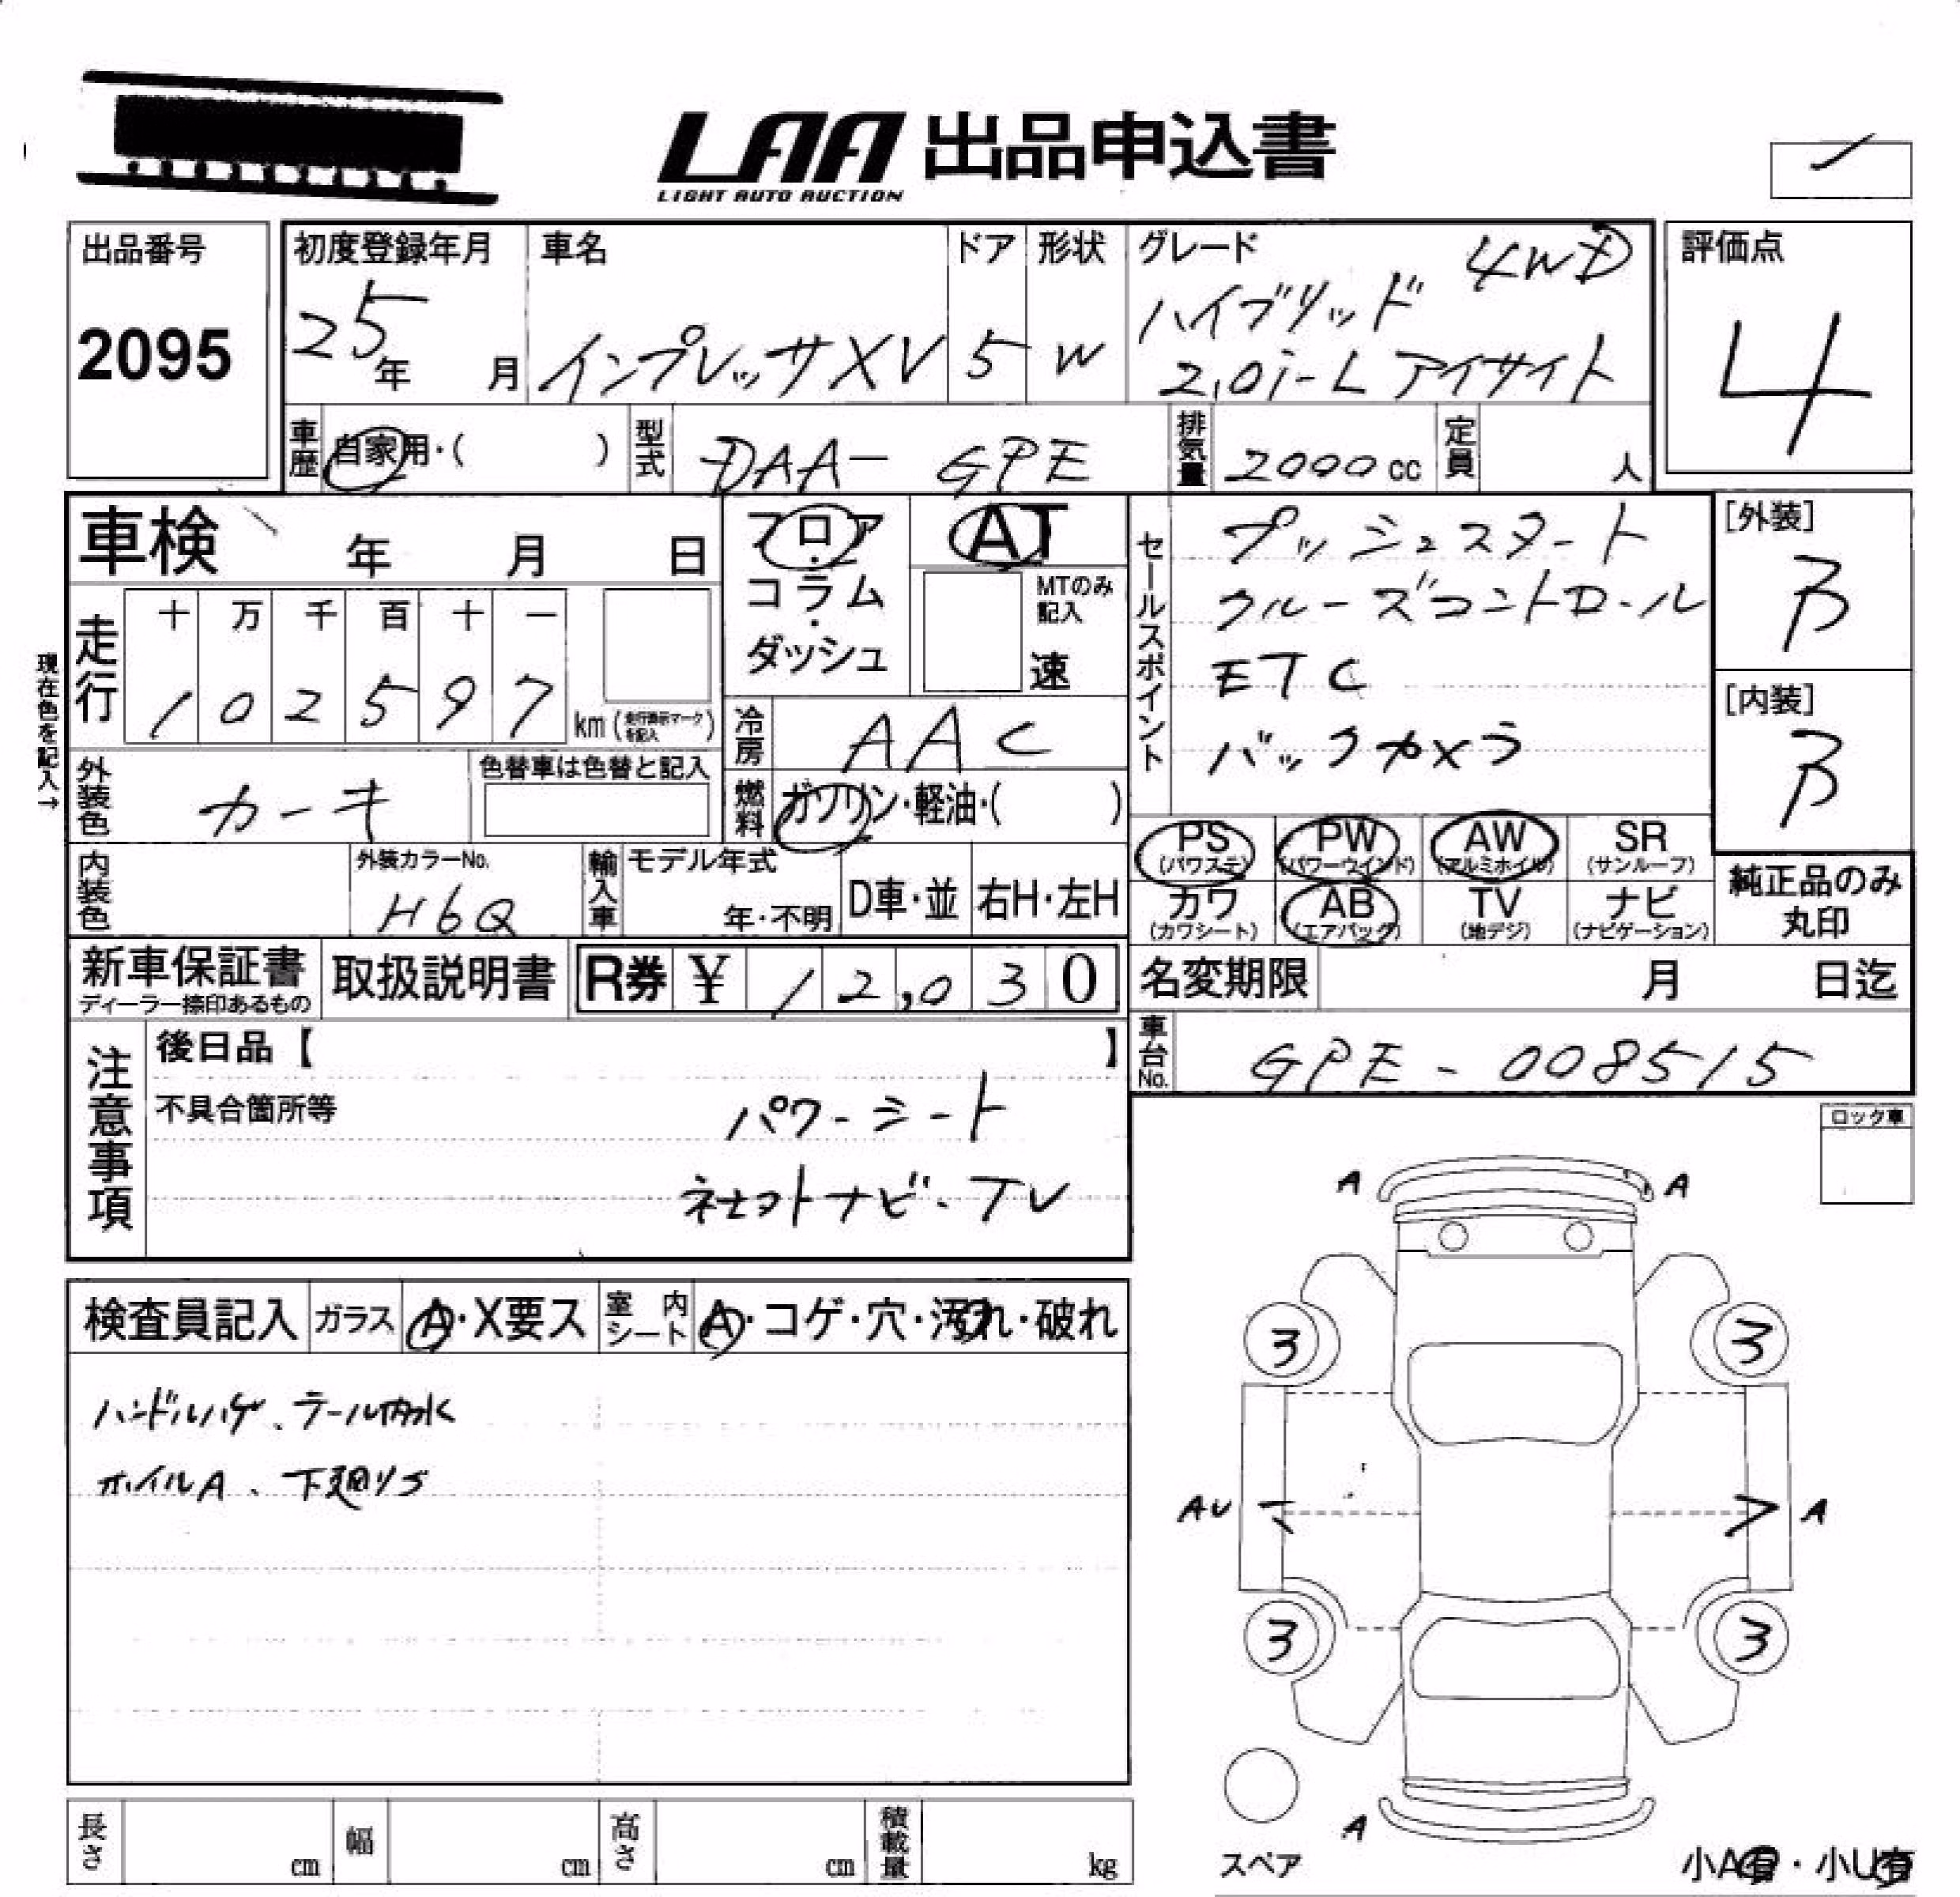 LAA 出品申込書
LIGHT AUTO AUCTION
出品番号
2095
初度登録年月
25年 月
車名
インプレッサXV
ドア
5
形状
W
グレード
4WD
ハイブリッド
2.0i-L アイサイト
評価点
4
車歴 自家用・( )
型式 DAA-GPE
排気量 2000cc
定員 人
車検 年 月 日
フロア・コラム・ダッシュ
AT
MTのみ記入
速
セールスポイント
プッシュスタート
クルーズコントロール
ETC
バックカメラ
[外装]
B
[内装]
B
現在色を記入→
走行
十 万 千 百 十 一
1 0 2 5 9 7 km (走行表示マークを記入)
冷房 AAC
外装色 カーキ
色替車は色替と記入
燃料 ガソリン・軽油・( )
PS (パワステ) PW (パワーウインド) AW (アルミホイル) SR (サンルーフ)
カワ (カワシート) AB (エアバック) TV (地デジ) ナビ (ナビゲーション)
純正品のみ丸印
内装色
外装カラーNo.
H6Q
輸入車 モデル年式 年・不明 D車・並 右H・左H
新車保証書
ディーラー捺印あるもの
取扱説明書
R券 ¥ 12,030
名変期限 月 日迄
車台No. GPE-008515
注意事項
後日品【 】
不具合箇所等
パワーシート
社外ナビ・TV
ロック車
A A
3 3
AU A
3 3
A
スペア
小A有・小U有
検査員記入 ガラス A・X要ス 室内シート A・コゲ・穴・汚れ・破れ
ハンドルハゲ、テール内水
ホイルA、下廻りS
長さ cm 幅 cm 高さ cm 積載量 kg